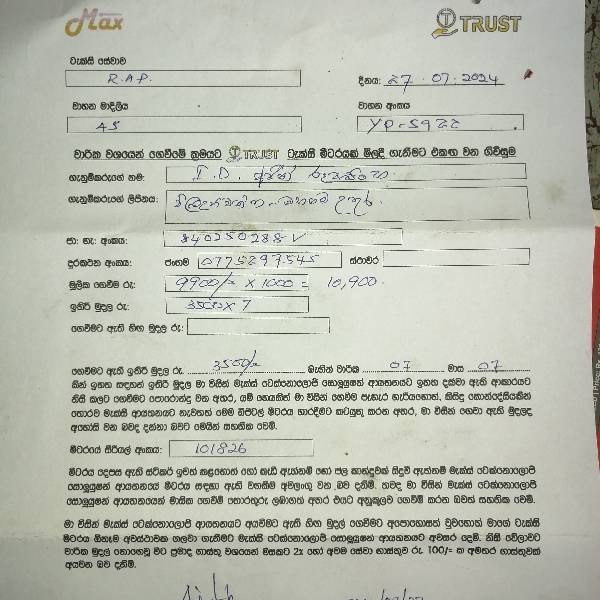 Max TRUST
ටැක්සි සේවාව
R.A.P. දිනය: 27.07.2024
වාහන මාදිලිය වාහන අංකය
A5 YP-5922
වාරික වශයෙන් ගෙවීමේ ක්‍රමයට TRUST ටැක්සි මීටරයක් මිලදී ගැනීමට එකඟ වන ගිවිසුම
ගැනුම්කරුගේ නම: I.D.
ගැනුම්කරුගේ ලිපිනය:
ජා: හැ: අංකය: 840250288V
දුරකථන අංකය: ජංගම 0775297545 ස්ථාවර
මූලික ගෙවීම රු: 9900/= X 1000 = 10,900
ඉතිරි මුදල රු: 3500 X 7
ගෙවීමට ඇති හිඟ මුදල රු:
ගෙවීමට ඇති ඉතිරි මුදල රු. 3500/= බැගින් වාරික 07 මාස 07
කින් ඉහත සඳහන් ඉතිරි මුදල මා විසින් මැක්ස් ටෙක්නොලොජි සොලුෂන් ආයතනයට ඉහත දක්වා ඇති ආකාරයට
නිසි කලට ගෙවීමට පොරොන්දු වන අතර, යම් හෙයකින් මා විසින් ගෙවීම පැහැර හැරියහොත්, කිසිදු කොන්දේසියකින්
තොරව මැක්ස් ආයතනයට නැවතත් මෙම ඩිජිටල් මීටරය භාරදීමට කටයුතු කරන අතර, මා විසින් ගෙවා ඇති මුදලද
අහෝසි වන බවද දන්නා බවට මෙයින් සහතික වෙමි.
මීටරයේ සීරියල් අංකය: 101826
මීටරය දෙපස ඇති ස්ටිකර් ඉවත් කළහොත් හෝ කැඩී ඇත්නම් හෝ ජල කාන්දුවක් සිදුවී ඇත්නම් මැක්ස් ටෙක්නොලොජි
සොලුෂන් ආයතනයේ මීටරය සඳහා ඇති වගකීම අවලංගු වන බව දනිමි. තවද මා විසින් මැක්ස් ටෙක්නොලොජි
සොලුෂන් ආයතනයෙන් මාසික ගෙවීම් තොරතුරු ලබාගත් අතර එයට අනුකූලව ගෙවීම් කරන බවත් සහතික වෙමි.
මා විසින් මැක්ස් ටෙක්නොලොජි ආයතනයට අයවීමට ඇති හිඟ මුදල් ගෙවීමට අපොහොසත් වුවහොත් මාගේ ටැක්සි
මීටරය ඕනෑම අවස්ථාවක ගලවා ගැනීමට මැක්ස් ටෙක්නොලොජි සොලුෂන් ආයතනයට අවසර දෙමි. නිසි වේලාවට
වාරික මුදල් නොගෙවූ විට ප්‍රමාද ගාස්තු වශයෙන් මසකට 2% හෝ අවම සේවා ගාස්තුව රු. 100/= ක අමතර ගාස්තුවක්
අයවන බව දනිමි.